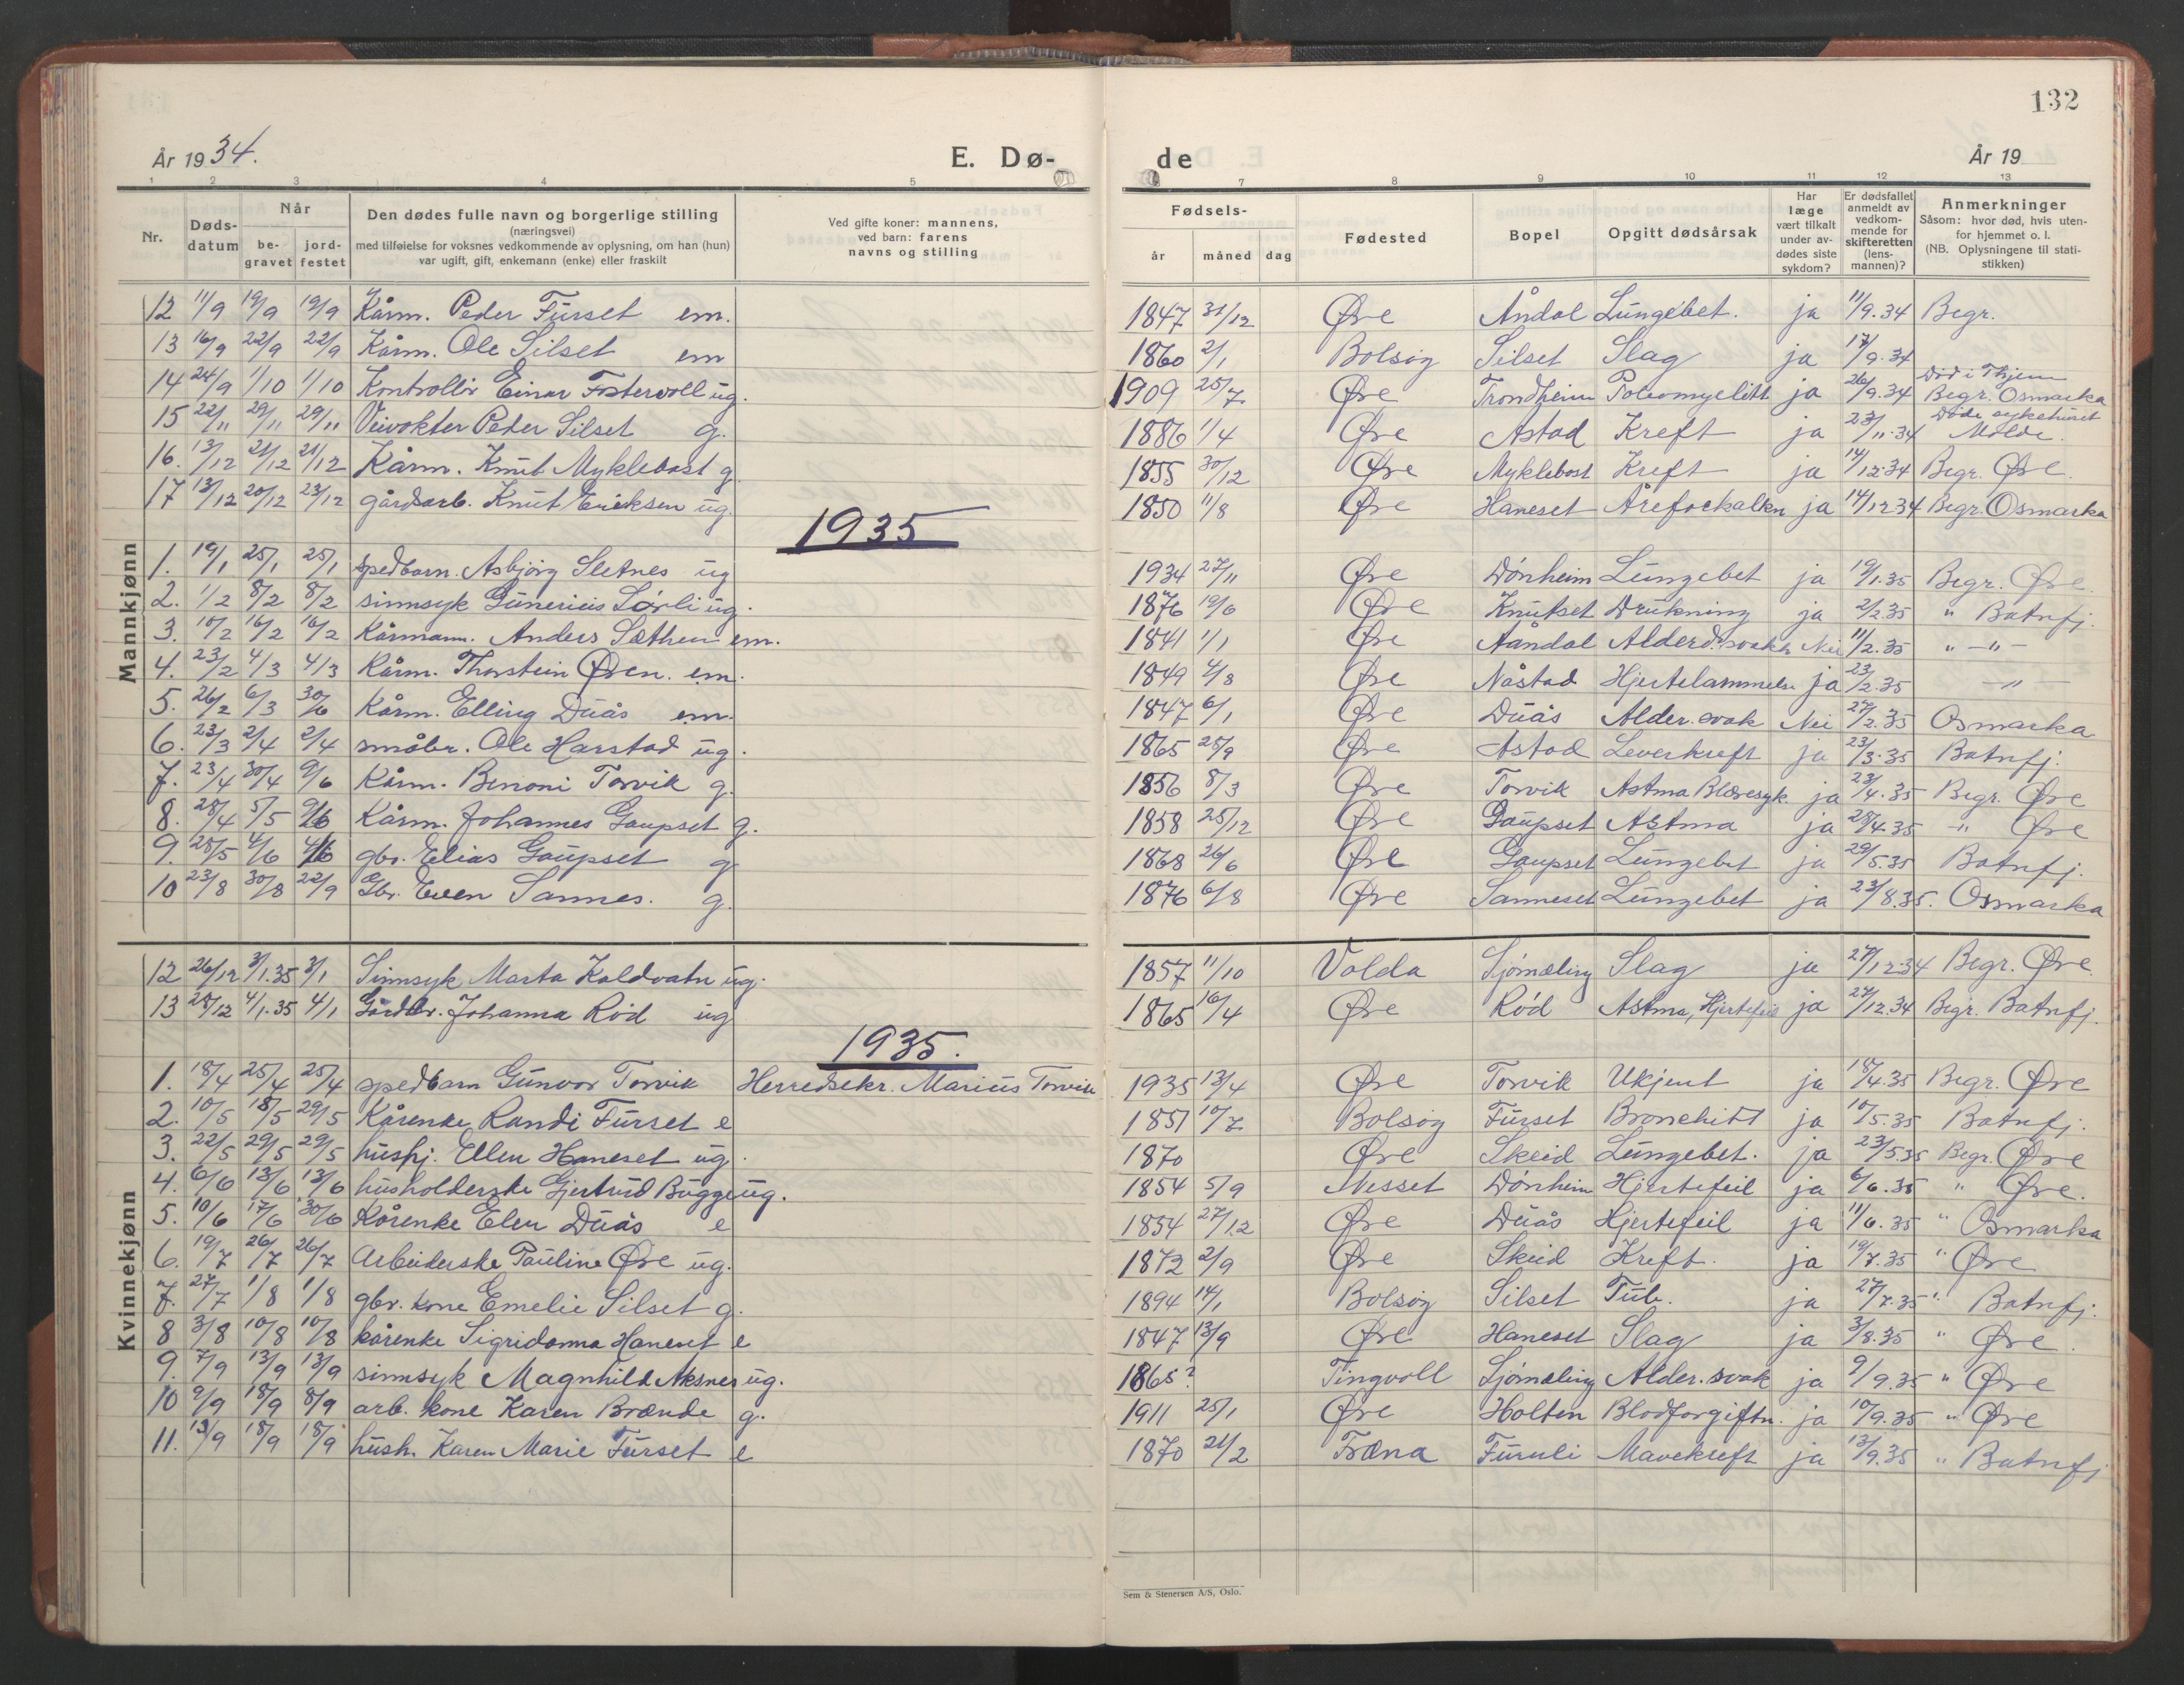 132
År 1934.
E. Dø-
de
År 19
1 2 3 4 5 6 7 8 9 10 11 12 13
Nr.
Døds-
datum
Når
be-
gravet
jord-
festet
Den dødes fulle navn og borgerlige stilling
(næringsvei)
med tilføielse for voksnes vedkommende av oplysning, om han (hun)
var ugift, gift, enkemann (enke) eller fraskilt
Ved gifte koner: mannens,
ved barn: farens
navns og stilling
Fødsels-
år måned dag
Fødested
Bopel
Opgitt dødsårsak
Har
læge
vært tilkalt
under av-
dødes siste
sykdom?
Er dødsfallet
anmeldt av
vedkom-
mende for
skifteretten
(lens-
mannen)?
Anmerkninger
Såsom: hvor død, hvis uten-
for hjemmet o. l.
(NB. Oplysningene til stati-
stikken)
Mannkjønn
12 11/9 19/9 19/9 Kårm. Peder Furset em. 1847 31/12 Øre Åndal Lungebet. ja 11/9.34 Begr.
13 16/9 22/9 22/9 Kårm. Ole Silset em 1860 2/1 Bolsøy Silset Slag ja 17/9.34
14 24/9 1/10 1/10 Kontrollør Einar Fostervoll ug. 1909 25/7 Øre Trondheim Poleomyelitt ja 26/9.34 Død i Thjem Begr. Osmarka
15 22/11 29/11 29/11 Veivokter Peder Silset g. 1886 1/4 Øre Astad Kreft ja 23/11.34 Døde sykehuset Molde.
16. 13/12 21/12 21/12 Kårm. Knut Myklebost g 1855 30/12 Øre Myklebost Kreft ja 14/12.34 Begr. Øre
17 13/12 20/12 23/12 gårdsarb. Knut Eriksen ug. 1850 11/8 Øre Haneset Årefockalkn ja 14/12 34 Begr. Osmarka
1935
1. 19/1 25/1 25/1 spedbarn. Asbjørg Sletnes ug 1934 27/11 Øre Dønheim Lungebet ja 19/1.35 Begr. Øre.
2. 1/2 8/2 8/2 sinnsyk Gunerius Sørli ug. 1876 19/6 Øre Knutset Drukning ja 2/2.35 " Batnfj.
3. 10/2 16/2 16/2 Kårmann. Anders Sæther em. 1841 1/1 Øre Aandal Alderd.svakh Nei 11/2.35 " - " -
4. 23/2 4/3 4/3 Kårm. Thorstein Øren. em. 1849 4/8 Øre Nåstad Hjertelammelse ja 23/2.35 - " -
5. 26/2 6/3 30/6 Kårm. Elling Duås em. 1847 6/1 Øre Duås Alder.svak Nei 27/2.35 Osmarka
6. 23/3 2/4 2/4 småbr. Ole Harstad ug. 1865 28/9 Øre Astad Leverkreft ja 23/3.35 Batnfj.
7. 23/4 30/4 9/6 Kårm. Benoni Torvik g. 1856 8/3 Øre Torvik Astma Blæresyk. ja 23/4.35 Begr. Øre
8. 28/4 5/5 9/6 Kårm. Johannes Gaupset g. 1858 25/12 Øre Gaupset Astma ja 28/4.35 -"- Øre
9. 28/5 4/6 4/6 gbr. Elias Gaupset g 1868 26/6 Øre Gaupset Lungebet ja 29/5.35 Batnfj.
10 23/8 30/8 22/9 Gbr. Even Sannes. g. 1876 6/8 Øre Sanneset Lungebet ja 23/8.35. Osmarka
Kvinnekjønn
12 26/12 3/1.35 3/1 Sinnsyk Marta Koldvatn ug. 1857 11/10 Volda Sjømæling Slag ja 27/12 34 Begr. Øre.
13 28/12 4/1.35 4/1 Gårdbr. Johanna Rød ug 1865 16/4 Øre Rød Astma, Hjertefeil ja 27/12.34 Begr. Batnfj.
1935.
1. 18/4 25/4 25/4 spedbarn Gunvor Torvik Herredsekr. Marius Torvik 1935 13/4 Øre Torvik Ukjent ja 18/4.35 Begr. Øre
2. 10/5 18/5 29/5 Kårenke Randi Furset e 1851 10/7 Bolsøy Furset Bronchitt ja 10/5.35 Batnfj.
3. 22/5 29/5 29/5 hushj. Ellen Haneset ug. 1870 Øre Skeid Lungebet. ja 23/5.35 Begr. Øre
4. 6/6 13/6 13/6 husholderske Gjertrud Bugge ug. 1854 5/9 Nesset Dønheim Hjertefeil ja 6/6.35 " Øre.
5. 10/6 17/6 30/6 Kårenke Elen Duås e 1854 27/12 Øre Duås Hjertefeil ja 11/6.35 " Osmarka
6. 19/7 26/7 26/7 Arbeiderske Pauline Øre ug. 1872 2/9 Øre Skeid Kreft. ja 19/7.35 " Øre
7. 27/7 1/8 1/8 gbr. kone Emelie Silset g. 1894 14/1 Bolsøy Silset Tub. ja 27/7.35 " Batnfj.
8 3/8 10/8 10/8 kårenke Sigridanna Haneset e 1847 13/9 Øre Haneset Slag ja 3/8.35 " Øre.
9. 7/9 13/9 13/9 sinnsyk Magnhild Aksnes ug. 1865? Tingvoll Sjømæling Alder.svak ja 9/9.35 " Øre
10 9/9 18/9 8/9 arb. kone Karen Brænde g. 1911 25/1 Øre Holten Blodforgiftn. ja 10/9.35 " Øre
11. 13/9 18/9 18/9 hush. Karen Marie Furset e 1870 21/2 Træna Furuli Mavekreft ja 13/9.35 " Batnfj
Sem & Stenersen A/S, Oslo.